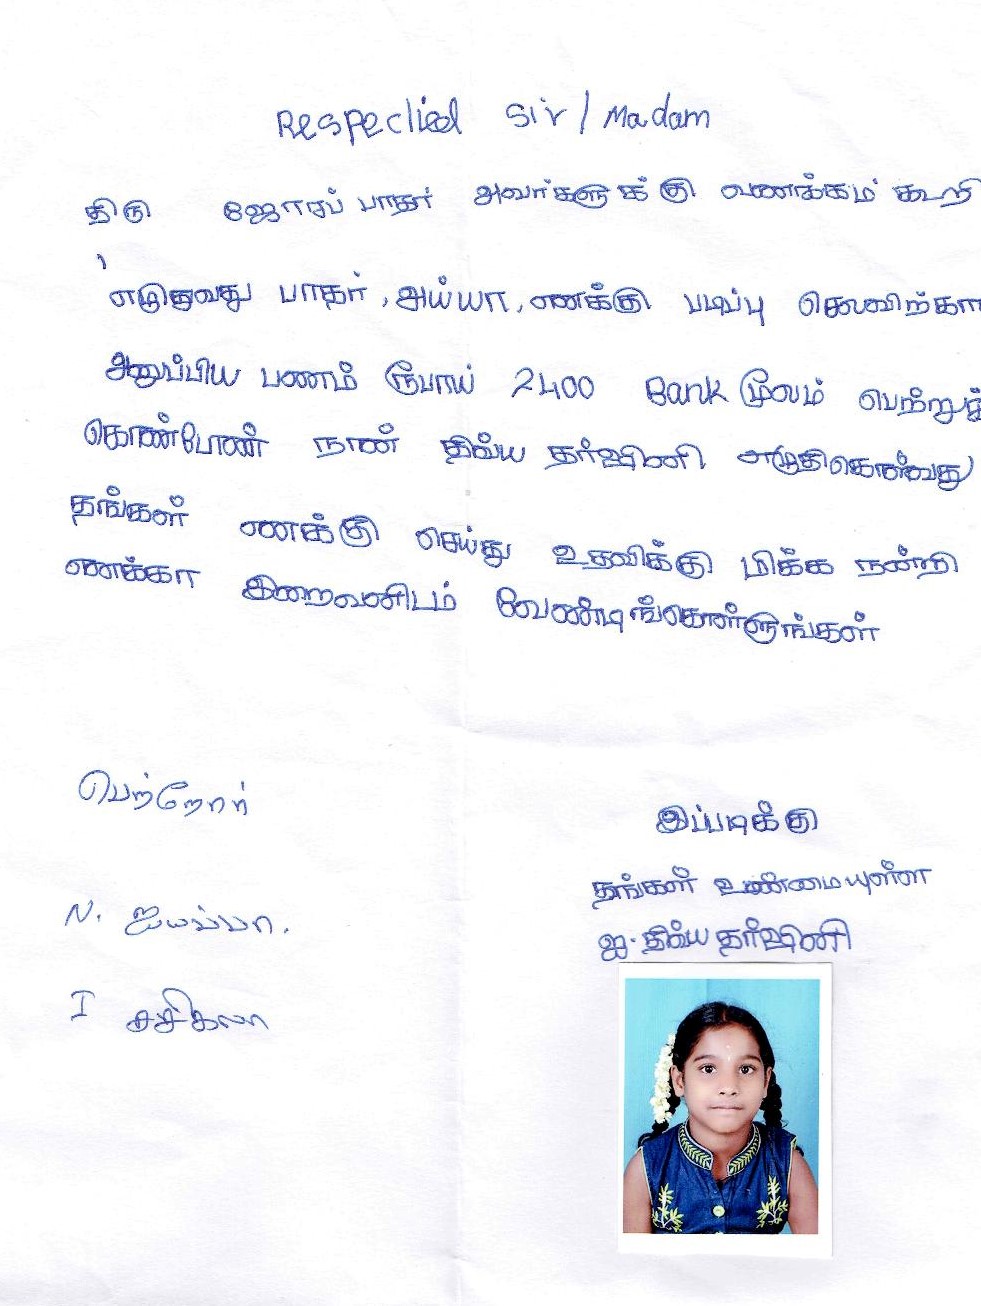 Respeclied Sir / Madam
திரு ஜோரப் பாதர் அவர்களுக்கு வணக்கம் கூறி
எழுதுவது பாதர், அய்யா, எணக்கு படிப்பு செலவிற்கா
அனுப்பிய பணம் ரூபாய் 2400 Bank மூலம் பெற்றுக்
கொண்டோண் நாண் திவ்ய தர்ஷினி எழுதிகொண்வது
தங்கள் எணக்கு செய்து உதவிக்கு மிக்க நன்றி
எணக்கா இறைவனிடம் வேண்டிங்கொள்ளுங்கள்
பெற்றோர்
இப்படிக்கு
தங்கள் உண்மையுள்ள
N. ஐயப்பா.
ஐ. திவ்ய தர்ஷினி
I சசிகலா